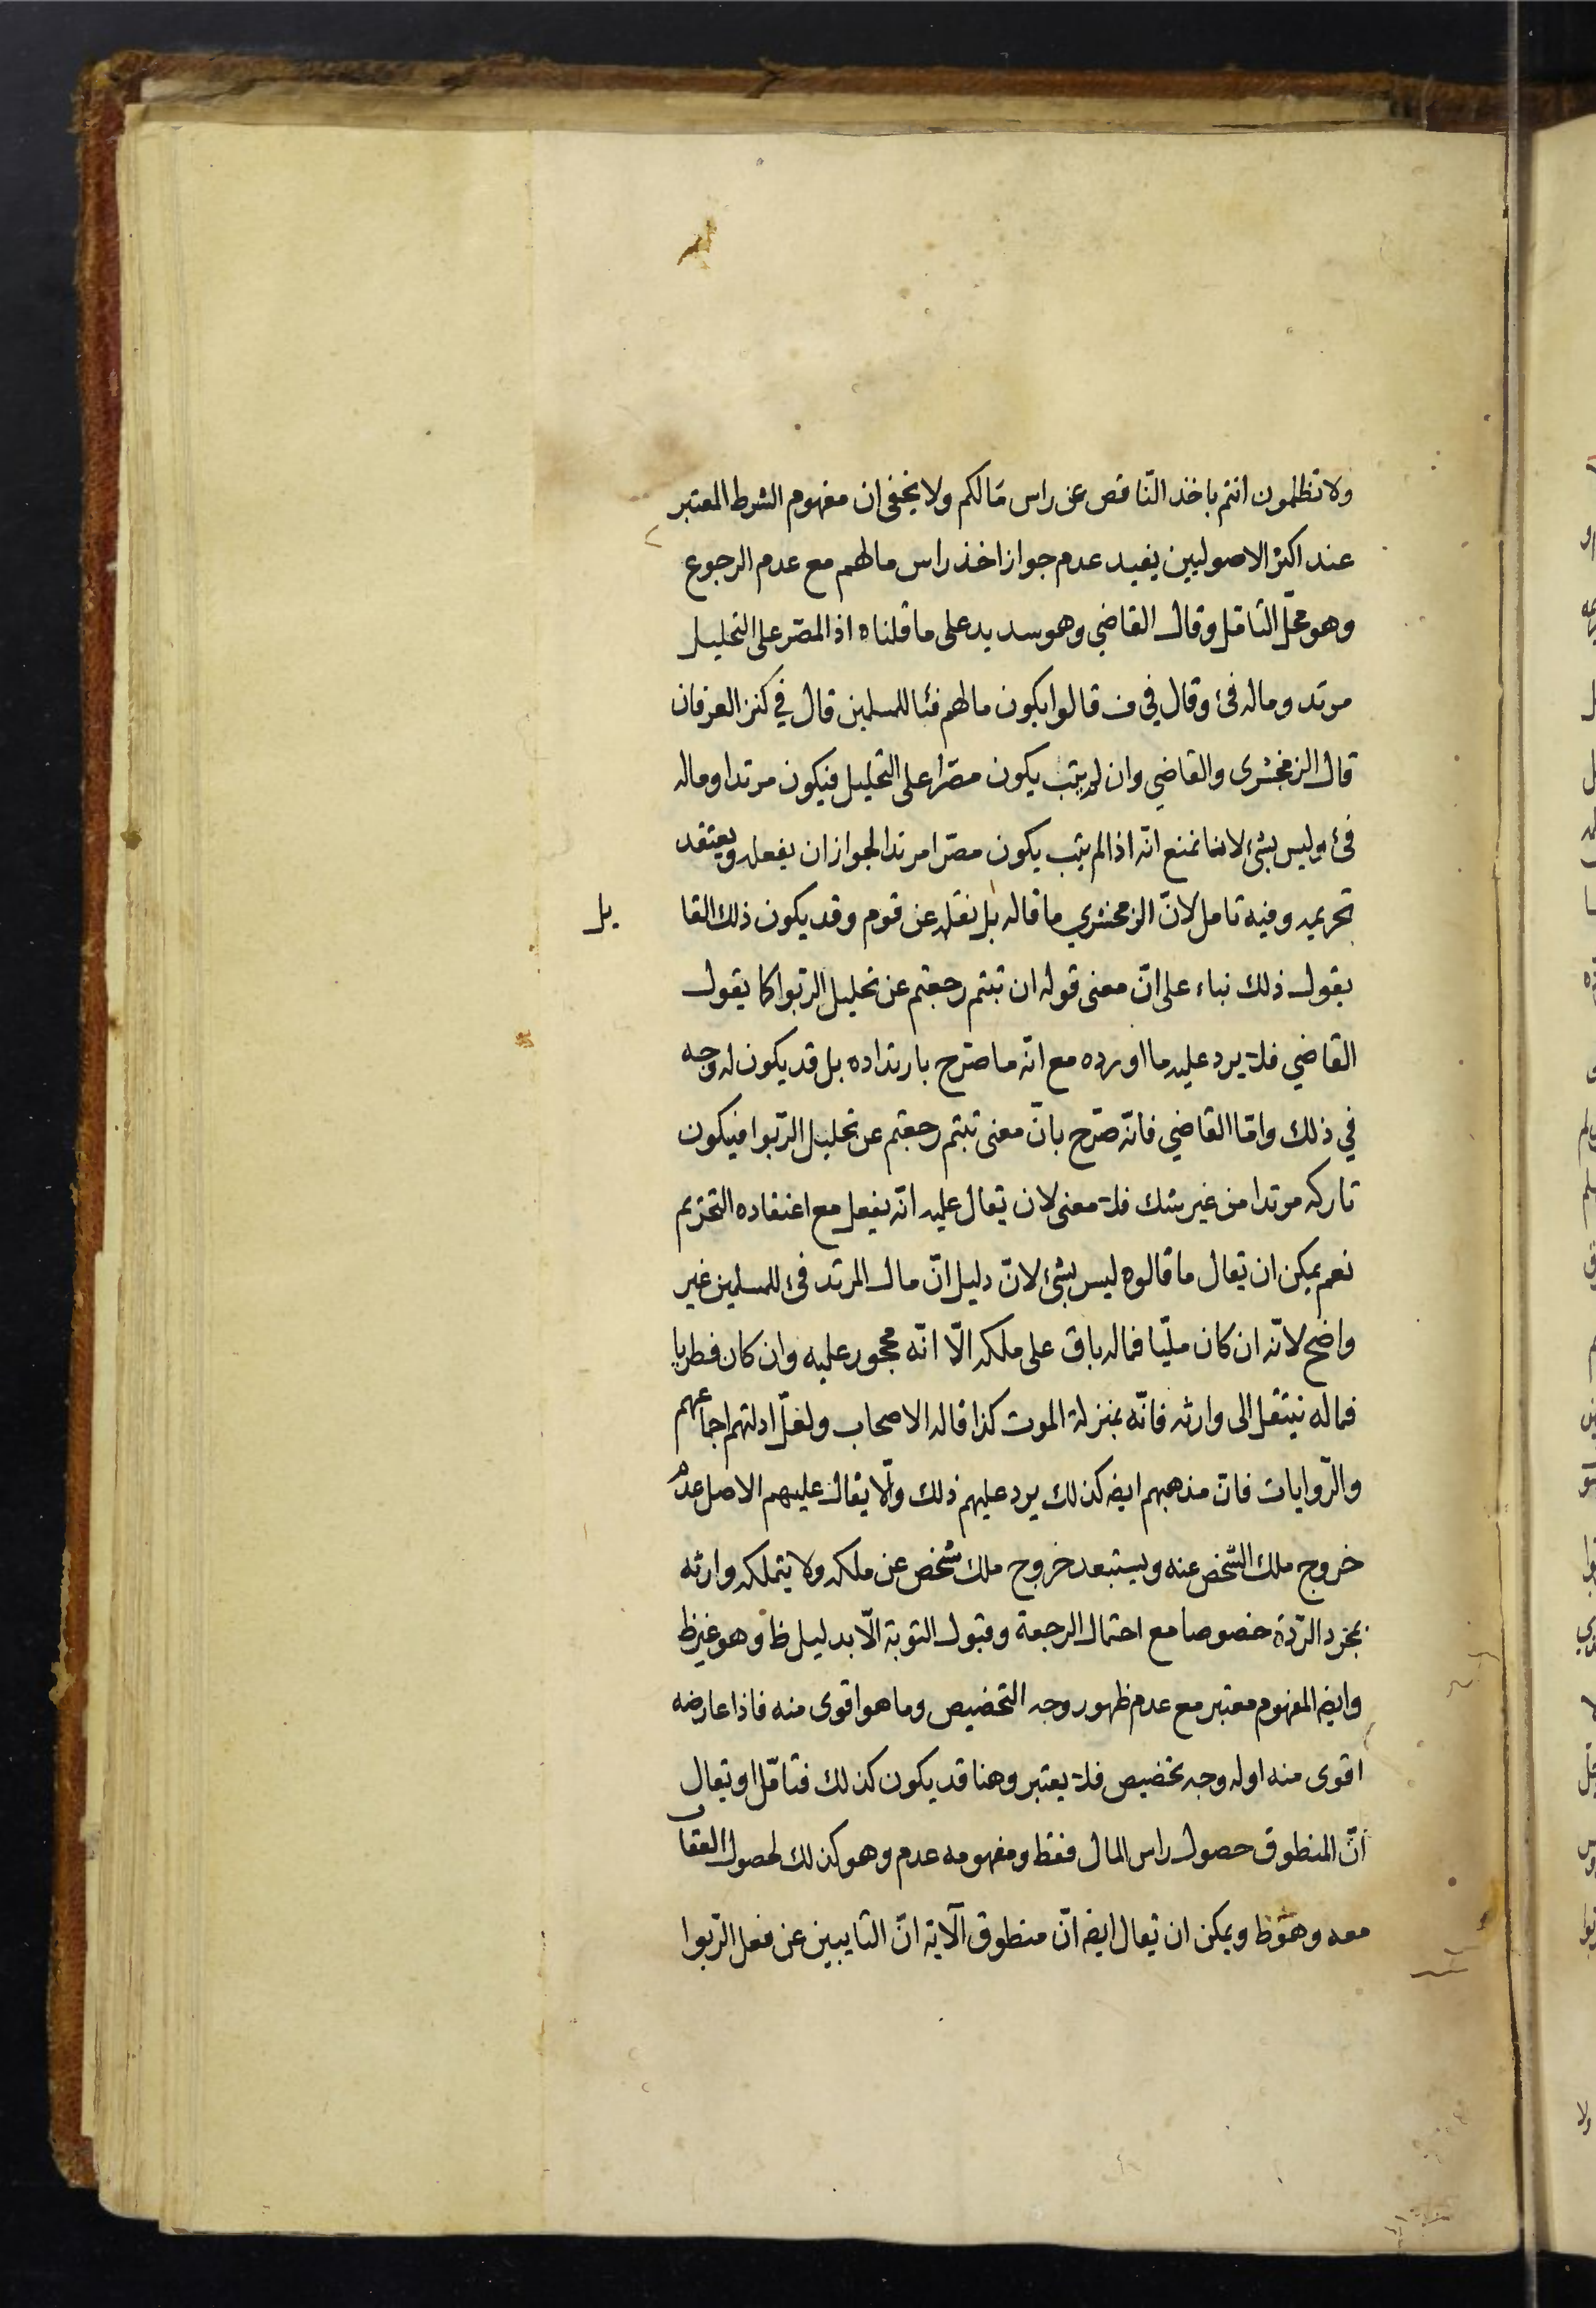 ولا تظلمون انتم باخذ النّاقص عن راس مَالكم ولا يخفى ان مفهوم الشرط المعتبر
عند اكثر الاصوليين يفيد عدم جواز اخذ راس مالهم مع عدم الرجوع
وهو محلّ التأمّل وقال القاضي وهو سديد على ما قلناه اذ المصّر على التحليل
مرتد وماله فئ وقال في ف قالوا يكون مالهم فئا للمسلمين قال في كنز العرفان
قال الزمخشرى والقاضي وان لم يتب يكون مصّرا على التحليل فيكون مرتدا وماله
فئ وليس بشئ لاننا نمنع انّه اذا لم يتب يكون مصّرا مرتدا لجواز ان يفعله ويعتقد
تحريمه وفيه تامل لانّ الزمخشري ما قاله بل نقله عن قوم وقد يكون ذلك القا
يل
يقول ذلك بناء على انّ معنى قوله ان تبتم رجعتم عن تحليل الرّبوا كما يقول
القاضي فلا يرد عليه ما اورده مع انّه ما صّرح بارتداده بل قد يكون له وجه
في ذلك وامّا القاضي فانّه صّرح بانّ معنى تبتم رجعتم عن تحليل الرّبوا فيكون
تاركه مرتدا من غير شك فلا معنى لان يقال عليه انّه يفعل مع اعتقاده التحريم
نعم يمكن ان يقال ما قالوه ليس بشئ لانّ دليل انّ مال المرتد فئ للمسلمين غير
واضح لانّه ان كان ملّيا فماله باق على ملكه الّا انّه محجور عليه وان كان فطريا
فماله ينتقل الى وارثه فانّه بمنزلة الموت كذا قاله الاصحاب ولعلّ ادلتهم اجماعهم
والرّوايات فان مذهبهم ايضه كذلك يرد عليهم ذلك والّا يقال عليهم الاصل عدم
خروج ملك الشّخص عنه ويستبعد خروج ملك شخص عن ملكه ولا يتملكه وارثه
بمجّرد الرّدة خصوصا مع احتمال الرجعة وقبول التوبة الّا بدليل ظ وهو غير ظ
وايضه المفهوم معتبر مع عدم ظهور وجه التخصيص وما هو اقوى منه فاذا عارضه
اقوى منه اوله وجه تخصيص فلا يعتبر وهنا قد يكون كذلك فتامّل او يقال
انّ المنطوق حصول راس المال فقط ومفهومه عدم وهو كذلك لحصول العقاب
معه وهو ظ ويمكن ان يقال ايضه انّ منطوق الآية انّ التايبين عن فعل الرّبوا